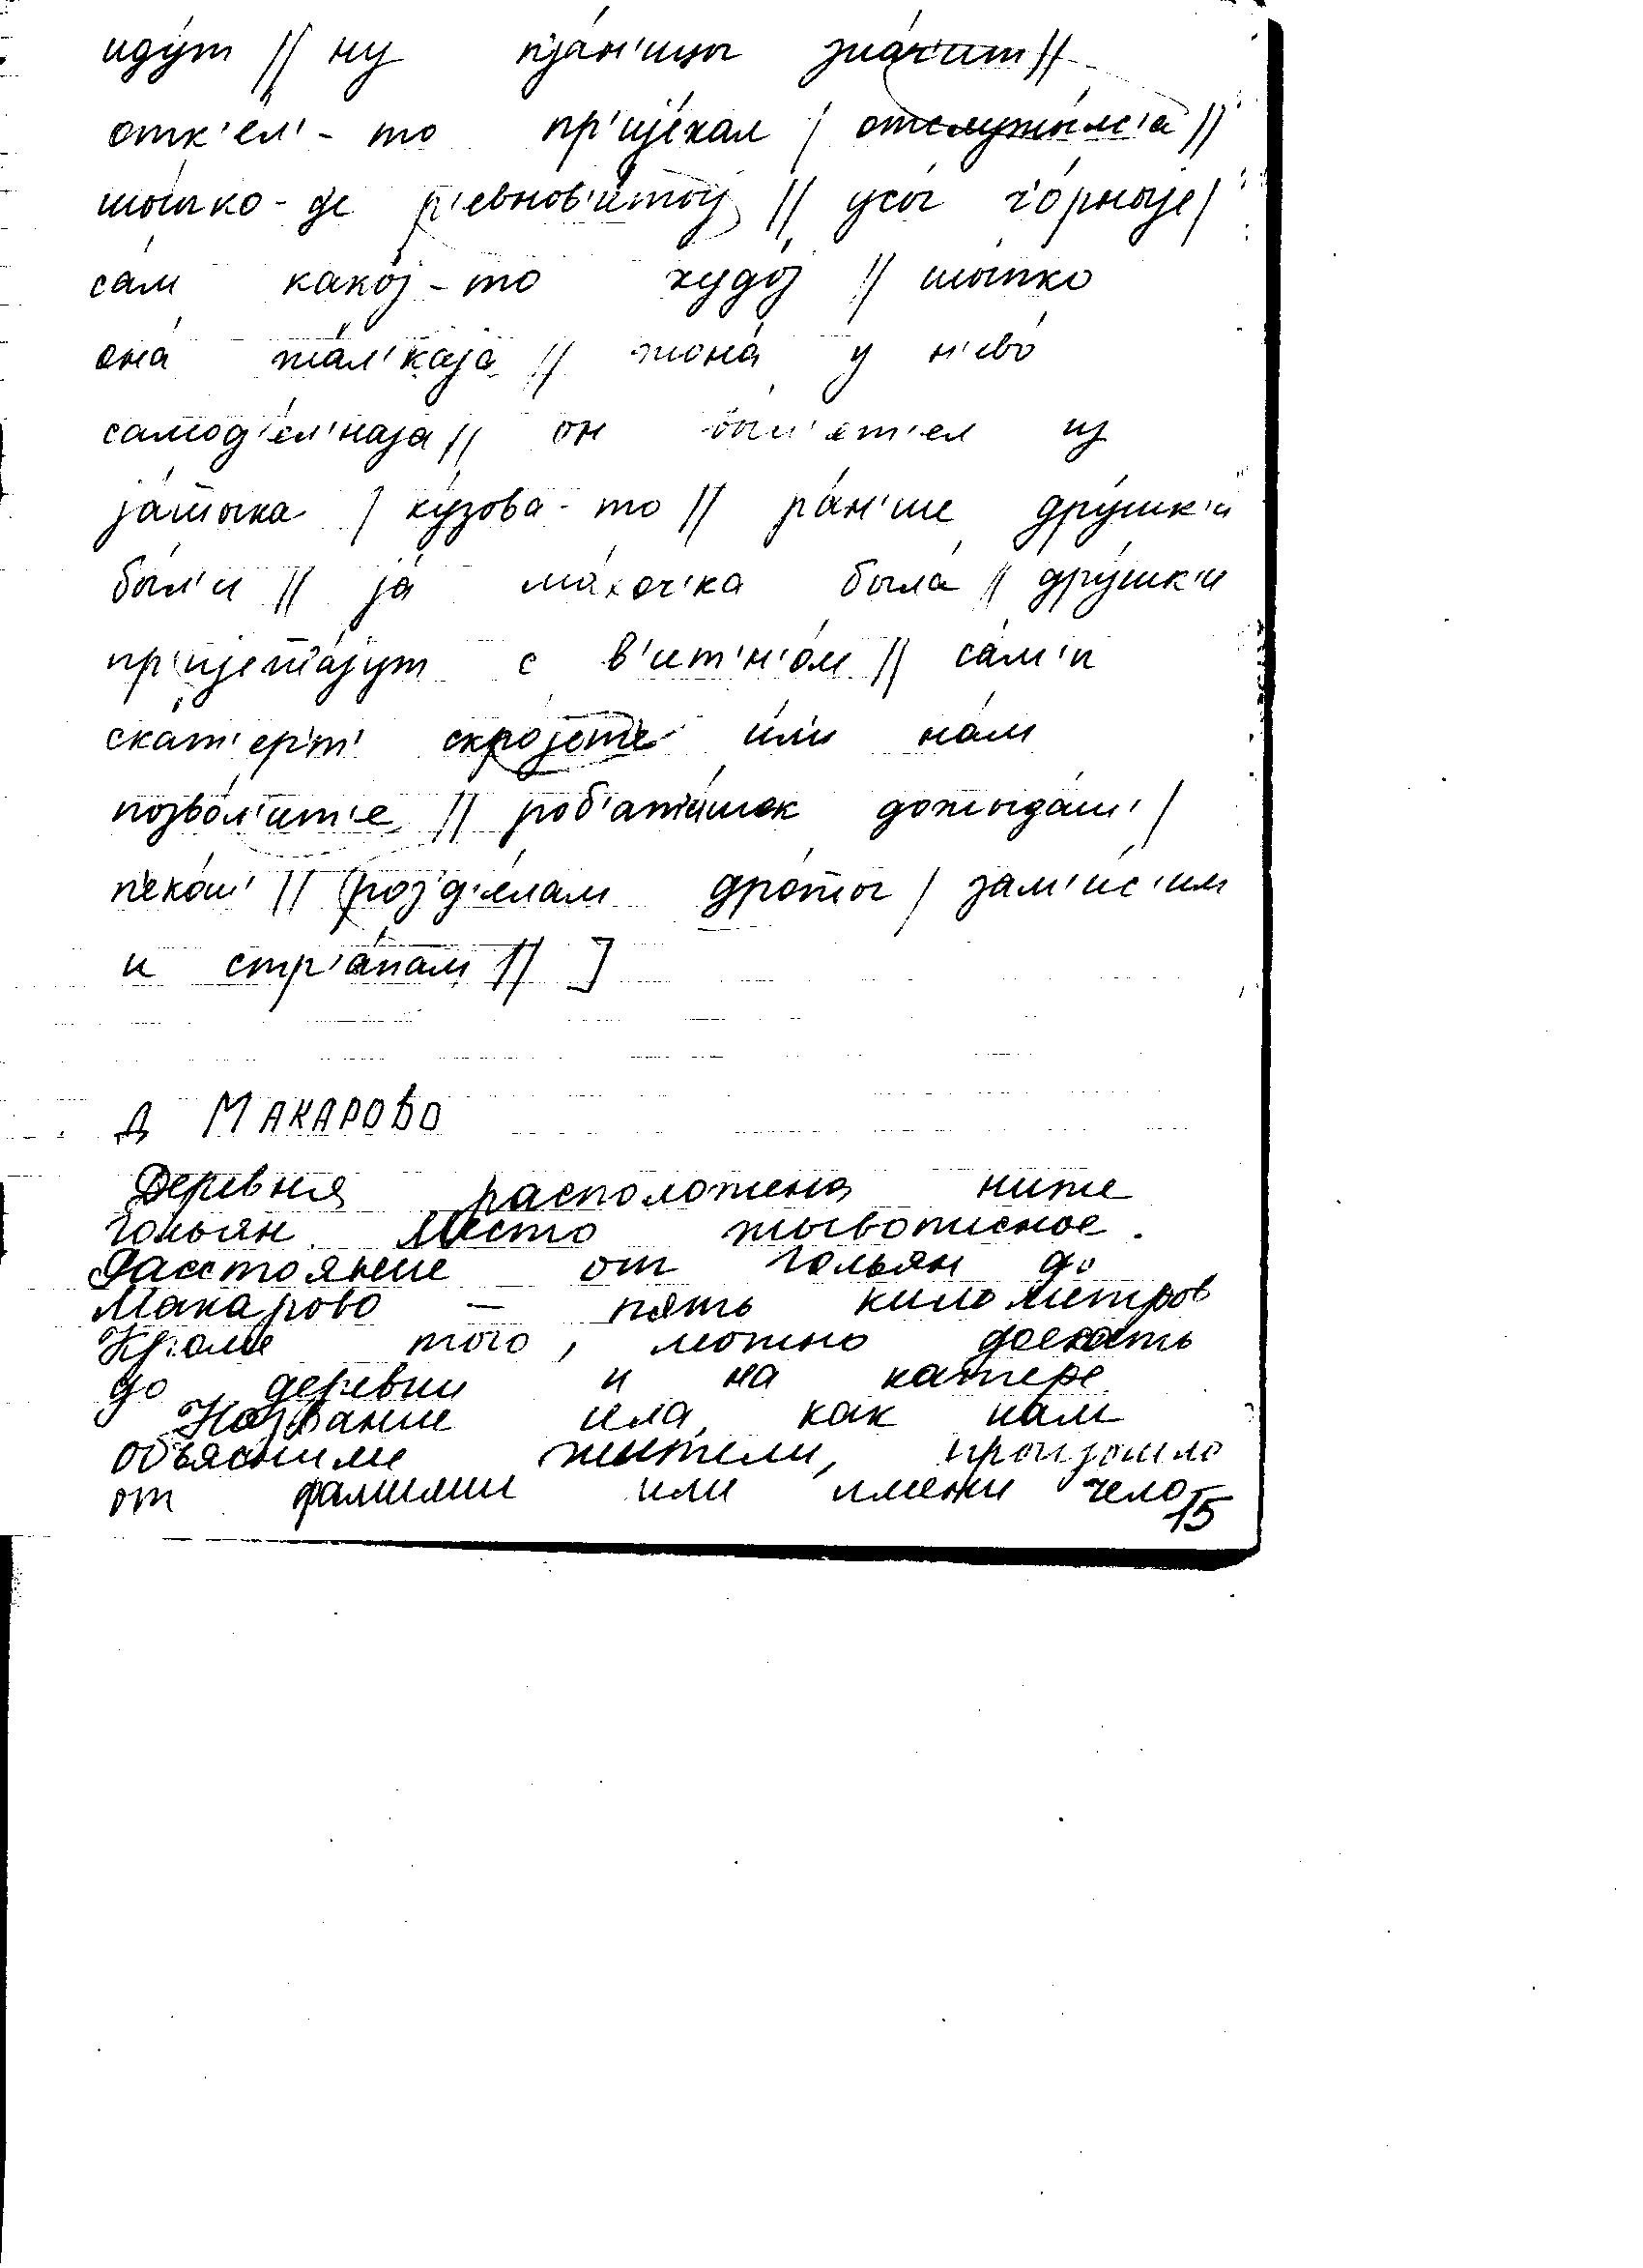 иду́т // ну пја́н'ицы зна́ч'ит //
отк'е́л'-то пр'ије́хал / отслужы́лс'а //
шы́пко-де р'евнов'и́тој // усы́ ч'о́рныје /
са́м како́ј-то худо́ј // шы́пко
она́ жа́л'каја // жона́ у н'ево́
самод'е́л'наја // он вы́л'ет'ел из
ја́шыка / ку́зова-то // ра́н'ше дру́шк'и
бы́л'и // ја́ ма́хоч'ка была́ // дру́шк'и
пр'ијежа́јут с в'ит'н'о́м // са́м'и
ска́т'ер'т' скро́јет'е и́ли на́м
позво́л'ит'е // роб'ат'и́шек дожыда́ш' /
п'еко́ш' // роз'д'е́лам дро́жжы / зам'и́с'им
и стр'а́пам // ]
д Макарово
Деревня расположена ниже
Гольян. Место жывописное.
Расстояние от Гольян до
Макарово — пять километров
Кроме того, можно доехать
до деревни и на катере.
Название села, как нам
объяснили жители, произошло
от фамилии или имени чело-
15